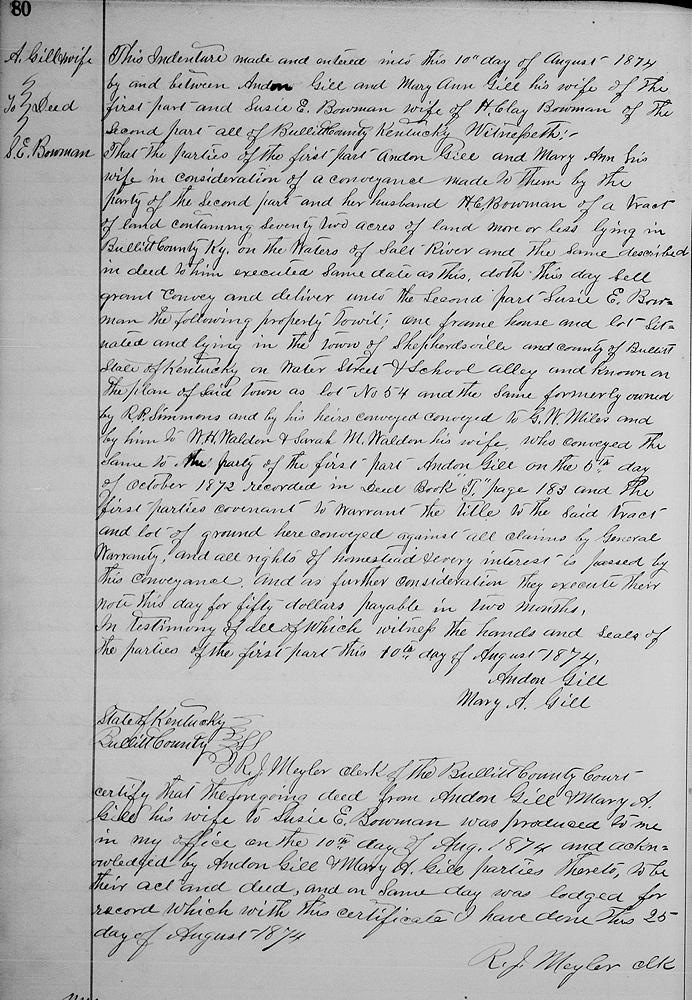 80
A. Gill & wife
To Deed
S. E. Bowman
This Indenture made and entered into this 10th day of August 1874
by and between Andon Gill and Mary Ann Gill his wife of the
first part and Susie E. Bowman wife of H. Clay Bowman of the
Second part all of Bullitt County Kentucky Witnesseth;-
That the parties of the first part Andon Gill and Mary Ann his
wife in consideration of a conveyance made to them by the
party of the Second part and her husband H. C. Bowman of a tract
of land containing Seventy two acres of land more or less lying in
Bullitt County Ky. on the Waters of Salt River and the same described
in deed to him executed same date as this, doth this day Sell
grant Convey and deliver unto the Second part Susie E. Bow-
man the following property to wit; one frame house and lot Sit-
uated and lying in the town of Shepherdsville and county of Bullitt
State of Kentucky on Water Street & School alley and known on
the plan of said town as lot No 54 and the same formerly owned
by R. P. Simmons and by his heirs conveyed conveyed to G. W. Miles and
by him to W. H. Waldon & Sarah M. Waldon his wife, who conveyed the
same to the party of the first part Andon Gill on the 5th day
of October 1872 recorded in Deed Book "T," page 183 and the
first parties covenant to warrant the title to the said tract
and lot of ground here conveyed against all claims by General
Warranty, and all rights of homestead & every interest is passed by
this conveyance, and as further consideration they execute their
note this day for fifty dollars payable in two months,
In testimony of all of which witness the hands and seals of
the parties of the first part this 10th day of August 1874,
Andon Gill
Mary A. Gill
State of Kentucky
Bullitt County SS
I R. J. Meyler clerk of the Bullitt County Court
certify that the foregoing deed from Andon Gill & Mary A.
Gill his wife to Susie E. Bowman was produced to me
in my office on the 10th day of Aug. 1874 and ackn-
owledged by Andon Gill & Mary A. Gill parties thereto, to be
their act and deed, and on same day was lodged for
record which with this certificate I have done this 25
day of August 1874
R. J. Meyler clk